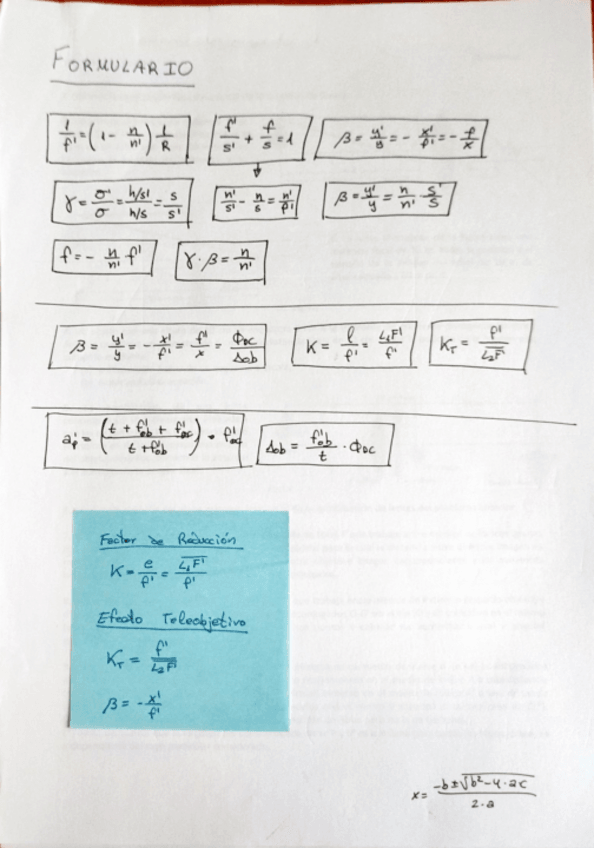 FORMULARIO
1/f' = (1 - n/n') 1/R   f'/s' + f/s = 1   β = y'/y = - x'/f' = - f/x
γ = σ'/σ = h/s'/h/s = s/s'   n'/s' - n/s = n'/f'   β = y'/y = n/n' · s'/s
f = - n/n' f'   γ · β = n/n'
β = y'/y = - x'/f' = f'/x = Φoc/Δob   K = l/f' = L₁F'/f'   K_T = f'/L₂F'
a'p = ((t + f'ob + f'oc)/(t + f'ob)) · f'oc   Δob = f'ob/t · Φoc
Factor de Reducción
K = e/f' = L₁F'/f'
Efecto Teleobjetivo
K_T = f'/L₂F'
β = - x'/f'
x = (-b ± √(b² - 4·ac))/(2·a)